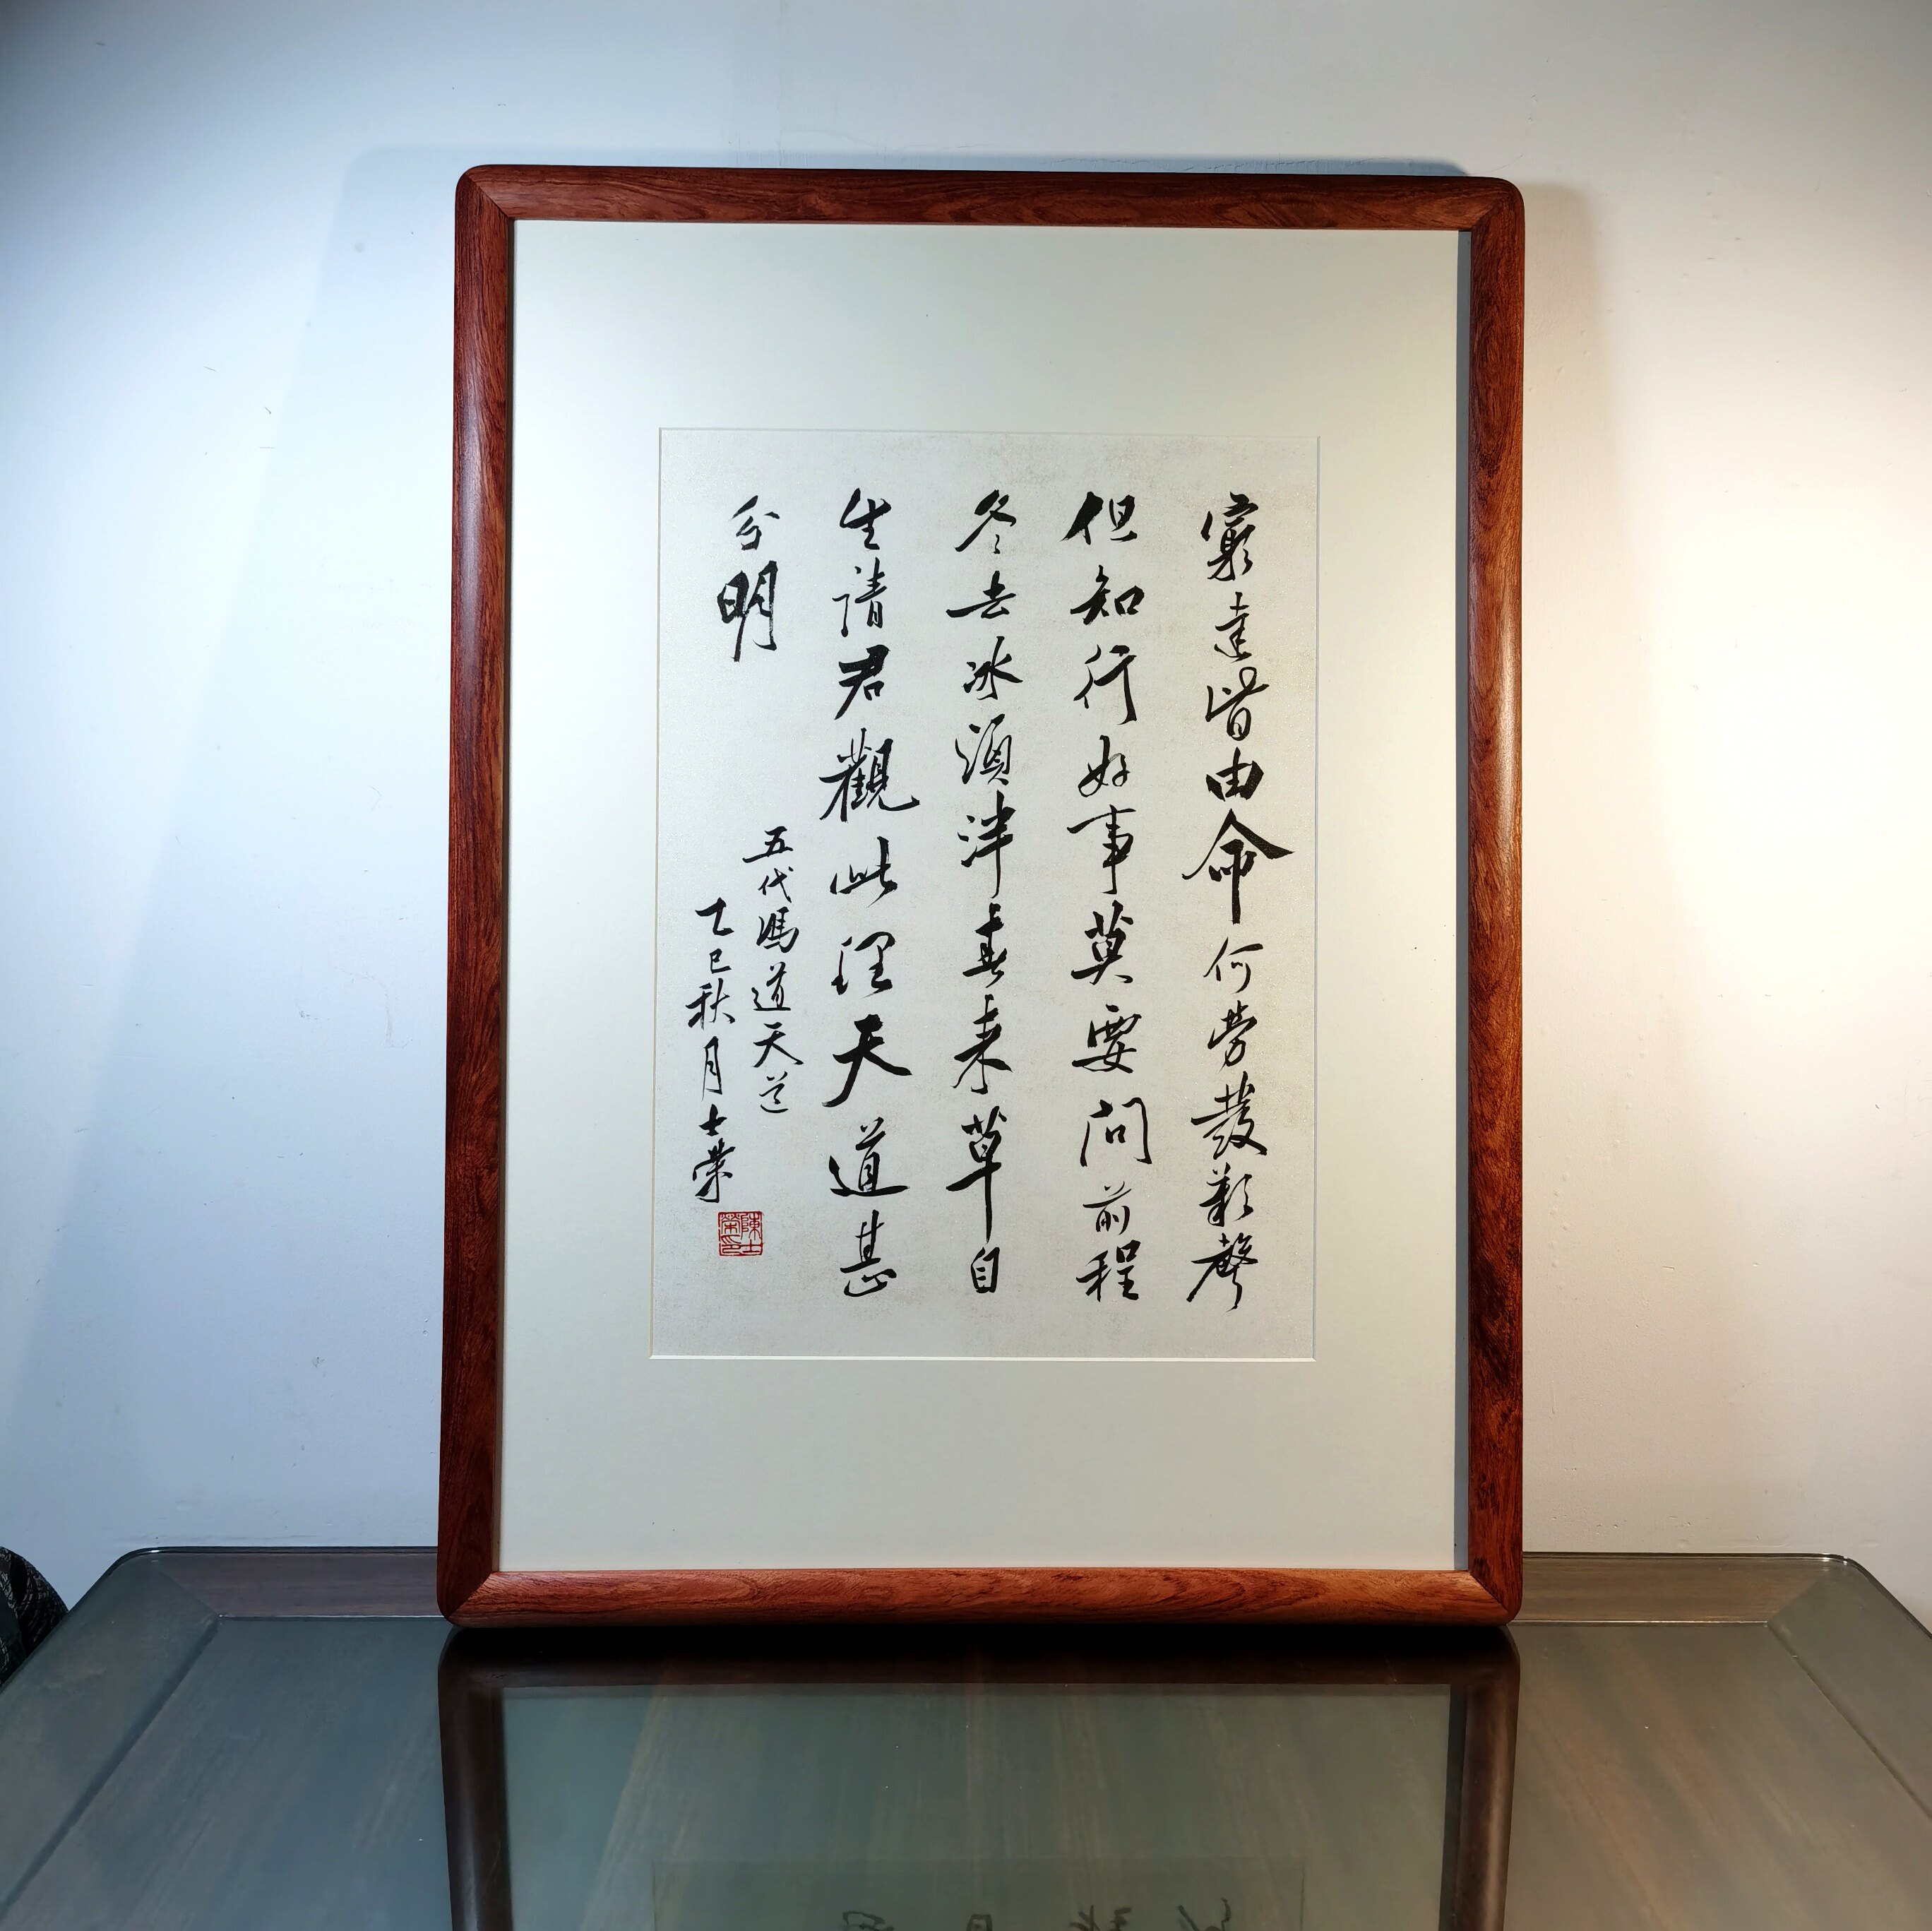 窮達皆由命何勞發歎聲
但知行好事莫要問前程
冬去冰須泮春來草自
生請君觀此理天道甚
分明
五代馮道天道
乙巳秋月士榮
陳士榮印